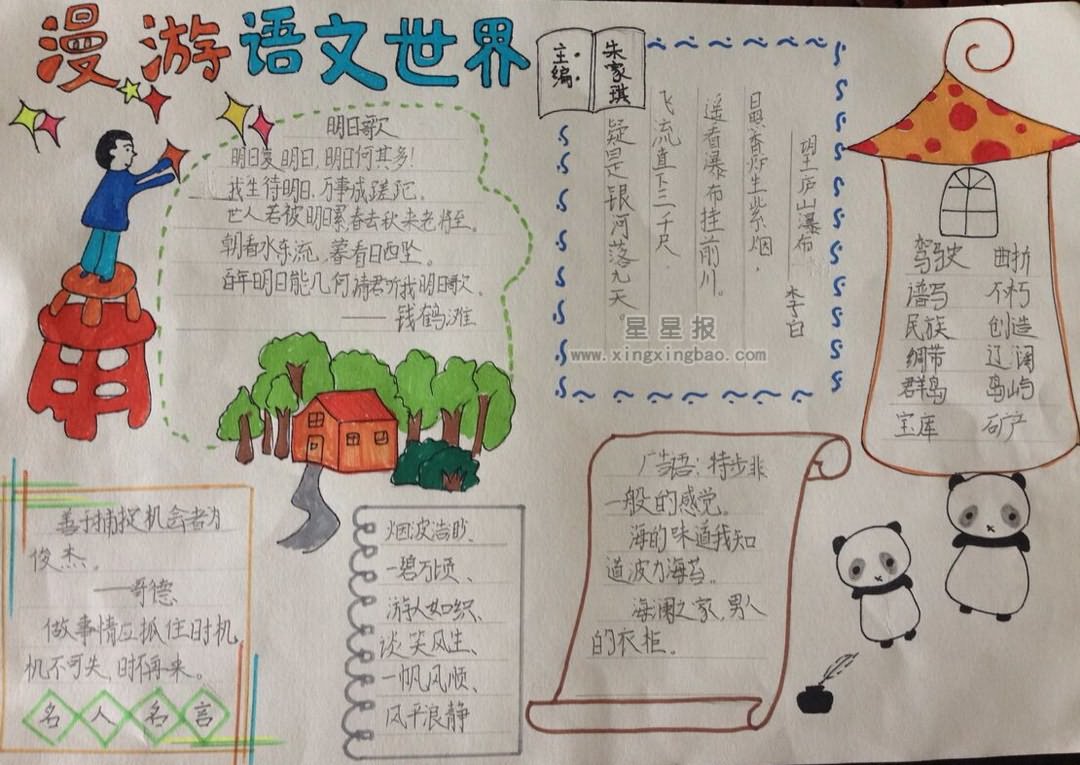 漫游语文世界
主编:
朱家琪
明日歌
明日复明日,明日何其多!
我生待明日,万事成蹉跎。
世人若被明日累春去秋来老将至。
朝看水东流,暮看日西坠。
百年明日能几何请君听我明日歌。
——钱鹤滩
望庐山瀑布
——李白
日照香炉生紫烟,
遥看瀑布挂前川。
飞流直下三千尺
疑是银河落九天。
星星报
www.xingxingbao.com
驾驶 曲折
谱写 不朽
民族 创造
绸带 辽阔
群岛 岛屿
宝库 矿产
善于捕捉机会者为
俊杰。
——哥德
做事情应抓住时机,
机不可失,时不再来。
名人名言
烟波浩渺、
一碧万顷、
游人如织、
谈笑风生、
一帆风顺、
风平浪静
广告语:特步非
一般的感觉。
海的味道我知
道波力海苔。
海澜之家,男人
的衣柜。